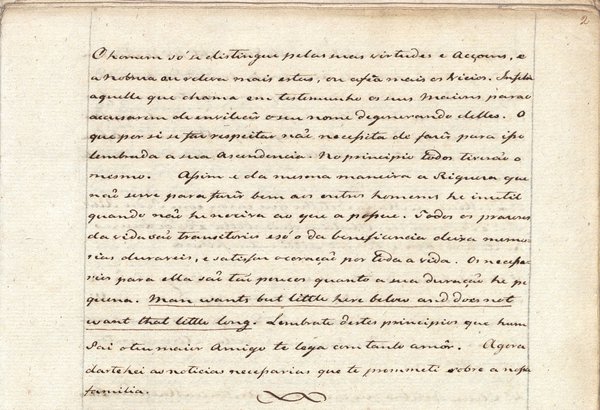 2
O homem só se distingue pelas suas virtudes e Acçoens, e
a nobreza ou releva mais estas, ou afêa mais os Vicios. Infeliz
aquelle que chama em testemunho os seus Maiores para o
accusarem de envilecer o seu nome degenerando delles. O
que por si se faz respeitar não necessita de fazer para isso
lembrada a sua Ascendencia. No principio todos tiverão o
mesmo. Assim e da mesma maneira a Riqueza que
não serve para fazer bem aos outros homens he inutil
quando não he nociva ao que a possue. Todos os prazeres
da vida saõ transitorios e só o da beneficiencia deixa memo-
rias duraveis, e satisfaz o coração por toda a vida. Os necessa-
rios para ella saõ tao poucos quanto a sua duração he pe-
quena. Man wants but little here below and does not
want that little long. Lembrate destes principios que hum
Pai o teu maior Amigo te lega com tanto amôr. - Agora
dartehei as noticias necessarias que te prometti sobre a nossa
familia.